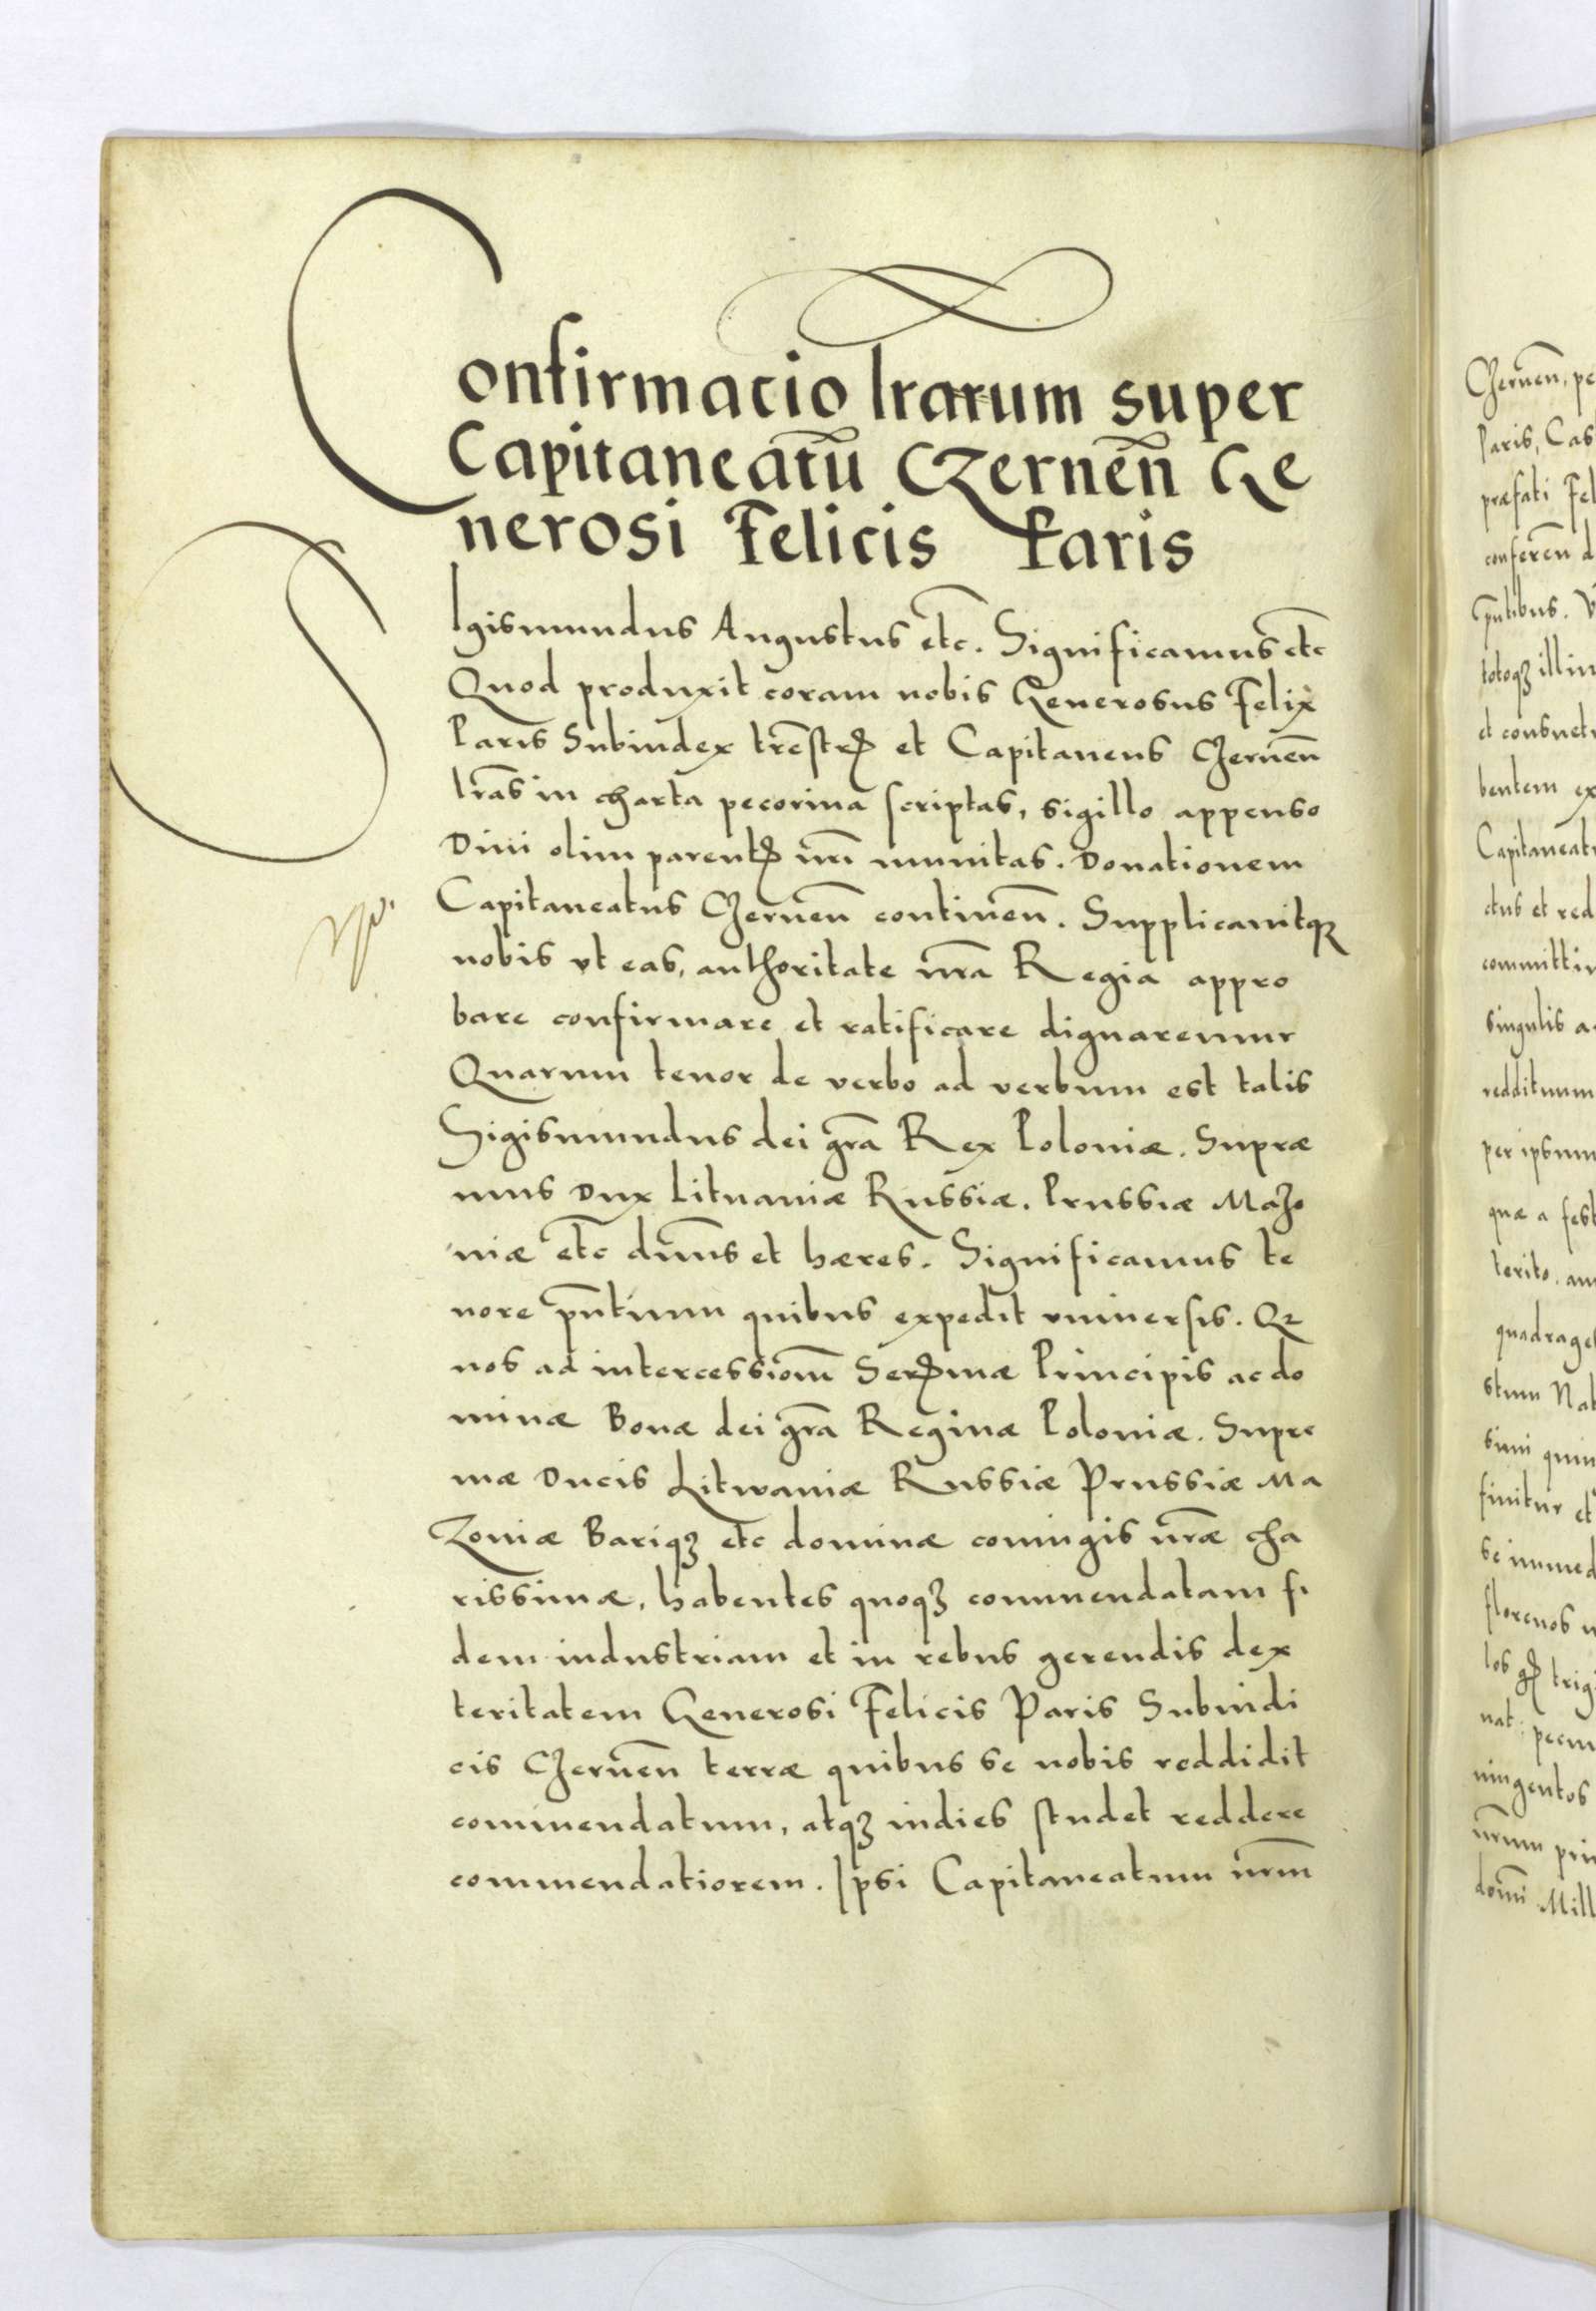 Confirmacio lrarum super
Capitaneatū Czernēn Ge
nerosi Felicis Paris
Sigismundus Augustus etc. Significamus etc
Quod produxit coram nobis Generosus Felix
Paris Subiudex trēstrꝭ et Capitaneus Czernēn
lrās in charta pecorina scriptas, sigillo appenso
Diui olim parentꝭ nr̄i munitas. Donationem
Capitaneatus Czernēn continēn. Supplicauitqꝫ
nobis vt eas, authoritate nr̄a Regia appro
bare confirmare et ratificare dignaremur
Quarum tenor de verbo ad verbum est talis
Sigismundus dei gr̄a Rex Poloniæ. Supræ
mus Dux Lituaniæ Russiæ. Prussiæ Mazo
uiæ etc dn̄us et hæres. Significamus te
nore pn̄tium quibus expedit vniuersis. Qꝫ
nos ad intercessionē̄ Serꝭmæ Principis ac do
minæ Bonæ dei gr̄a Reginæ Poloniæ. Supre
mæ Ducis Litwaniæ Russiæ Prussiæ Ma
zouiæ Bariqꝫ etc dominæ coniugis nr̄æ cha
rissimæ, habentes quoqꝫ commendatam fi
dem industriam et in rebus gerendis dex
teritatem Generosi Felicis Paris Subiudi
cis Czernēn terræ quibus se nobis reddidit
commendatum, atqꝫ indies studet reddere
commendatiorem. Ipsi Capitaneatum nr̄m
Czernēn, pe
Paris, Cas
præfati Fel
conferēn d
pn̄tibus. V
totoqꝫ illiu
et consuetu
bentem ex
Capitaneatu
ctus et red
committim
singulis a
reddituum
per ipsum
quæ a fest
terito. an
quadrages
stum Nat
simi quin
finitur et
se immed
florenos
los gꝭ trig
nat: pecun
ningentos
nr̄um prin
domi Mill